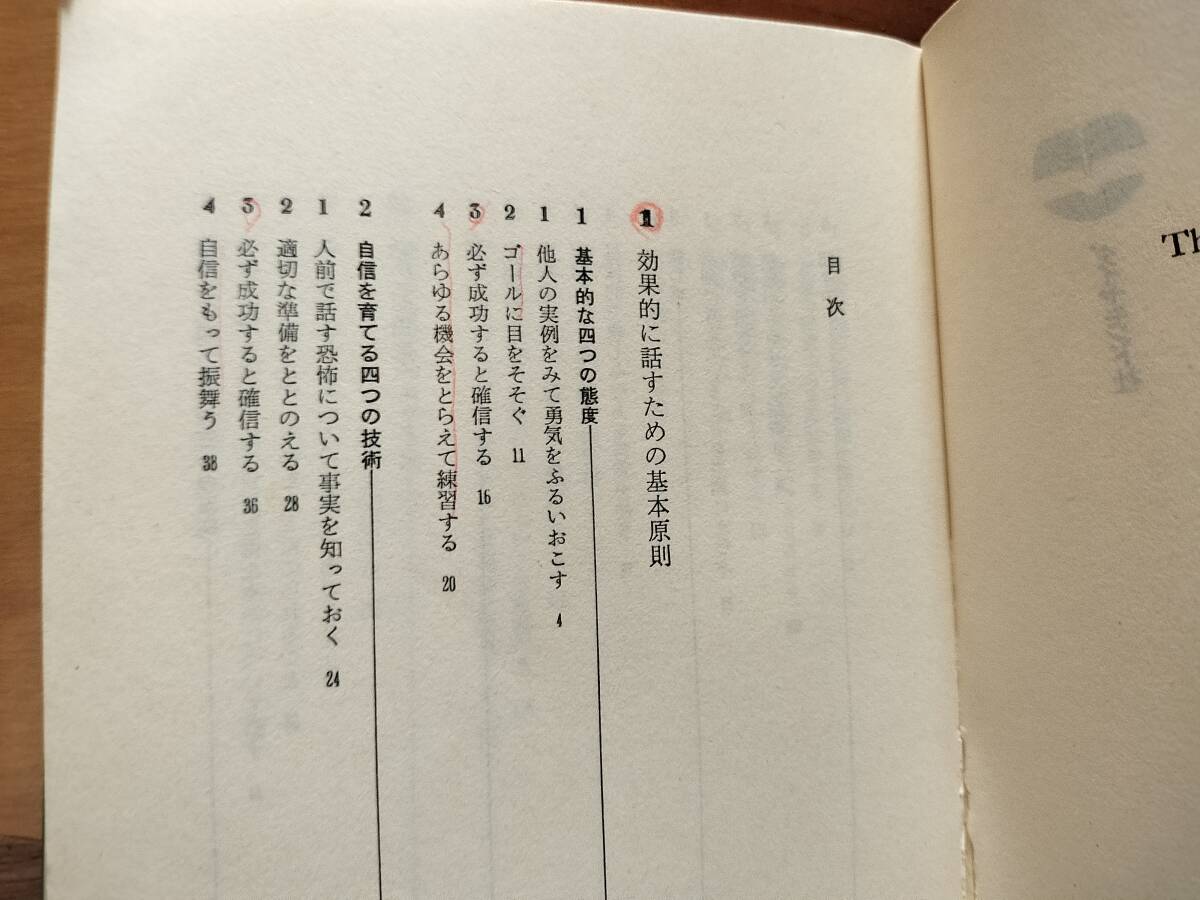 目次
1 効果的に話すための基本原則
1 基本的な四つの態度
1 他人の実例をみて勇気をふるいおこす 4
2 ゴールに目をそそぐ 11
3 必ず成功すると確信する 16
4 あらゆる機会をとらえて練習する 20
2 自信を育てる四つの技術
1 人前で話す恐怖について事実を知っておく 24
2 適切な準備をととのえる 28
3 必ず成功すると確信する 36
4 自信をもって振舞う 38
Th